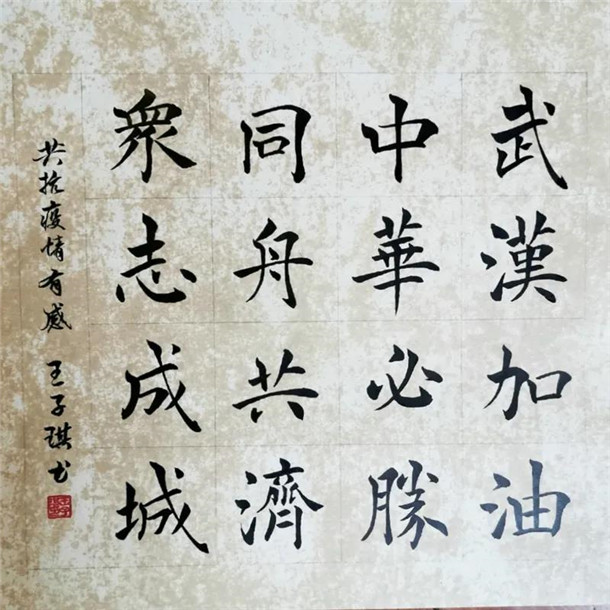 武漢加油
中華必勝
同舟共濟
衆志成城
共抗疫情有感 王子琪书